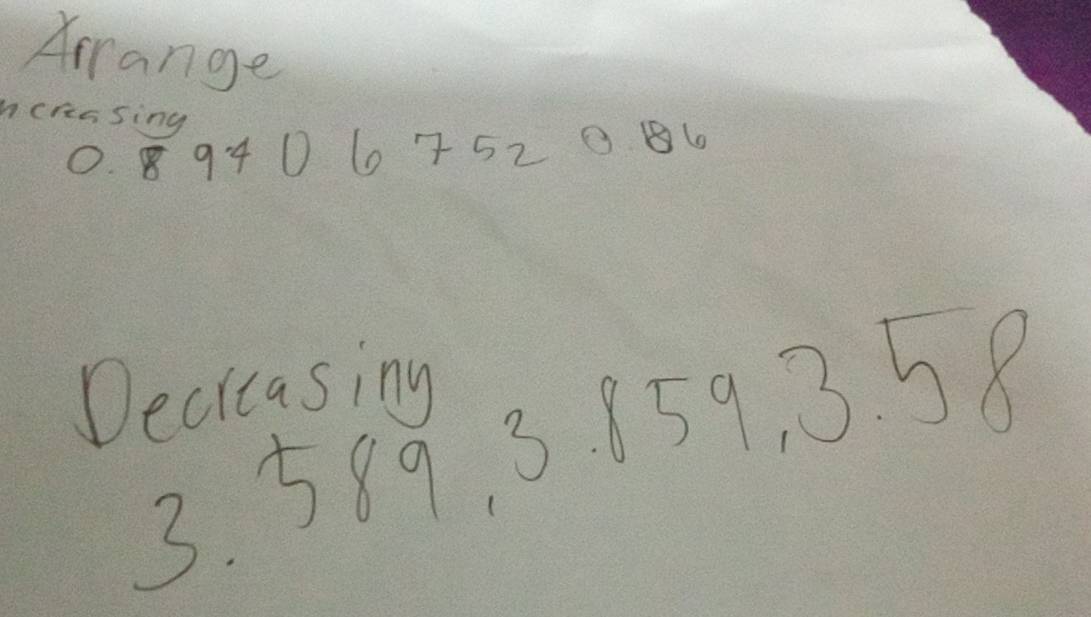 Arrange
ncreasing
0.894 0 6 7 52 0.86
Decreasing
3.589, 3.859, 3.58